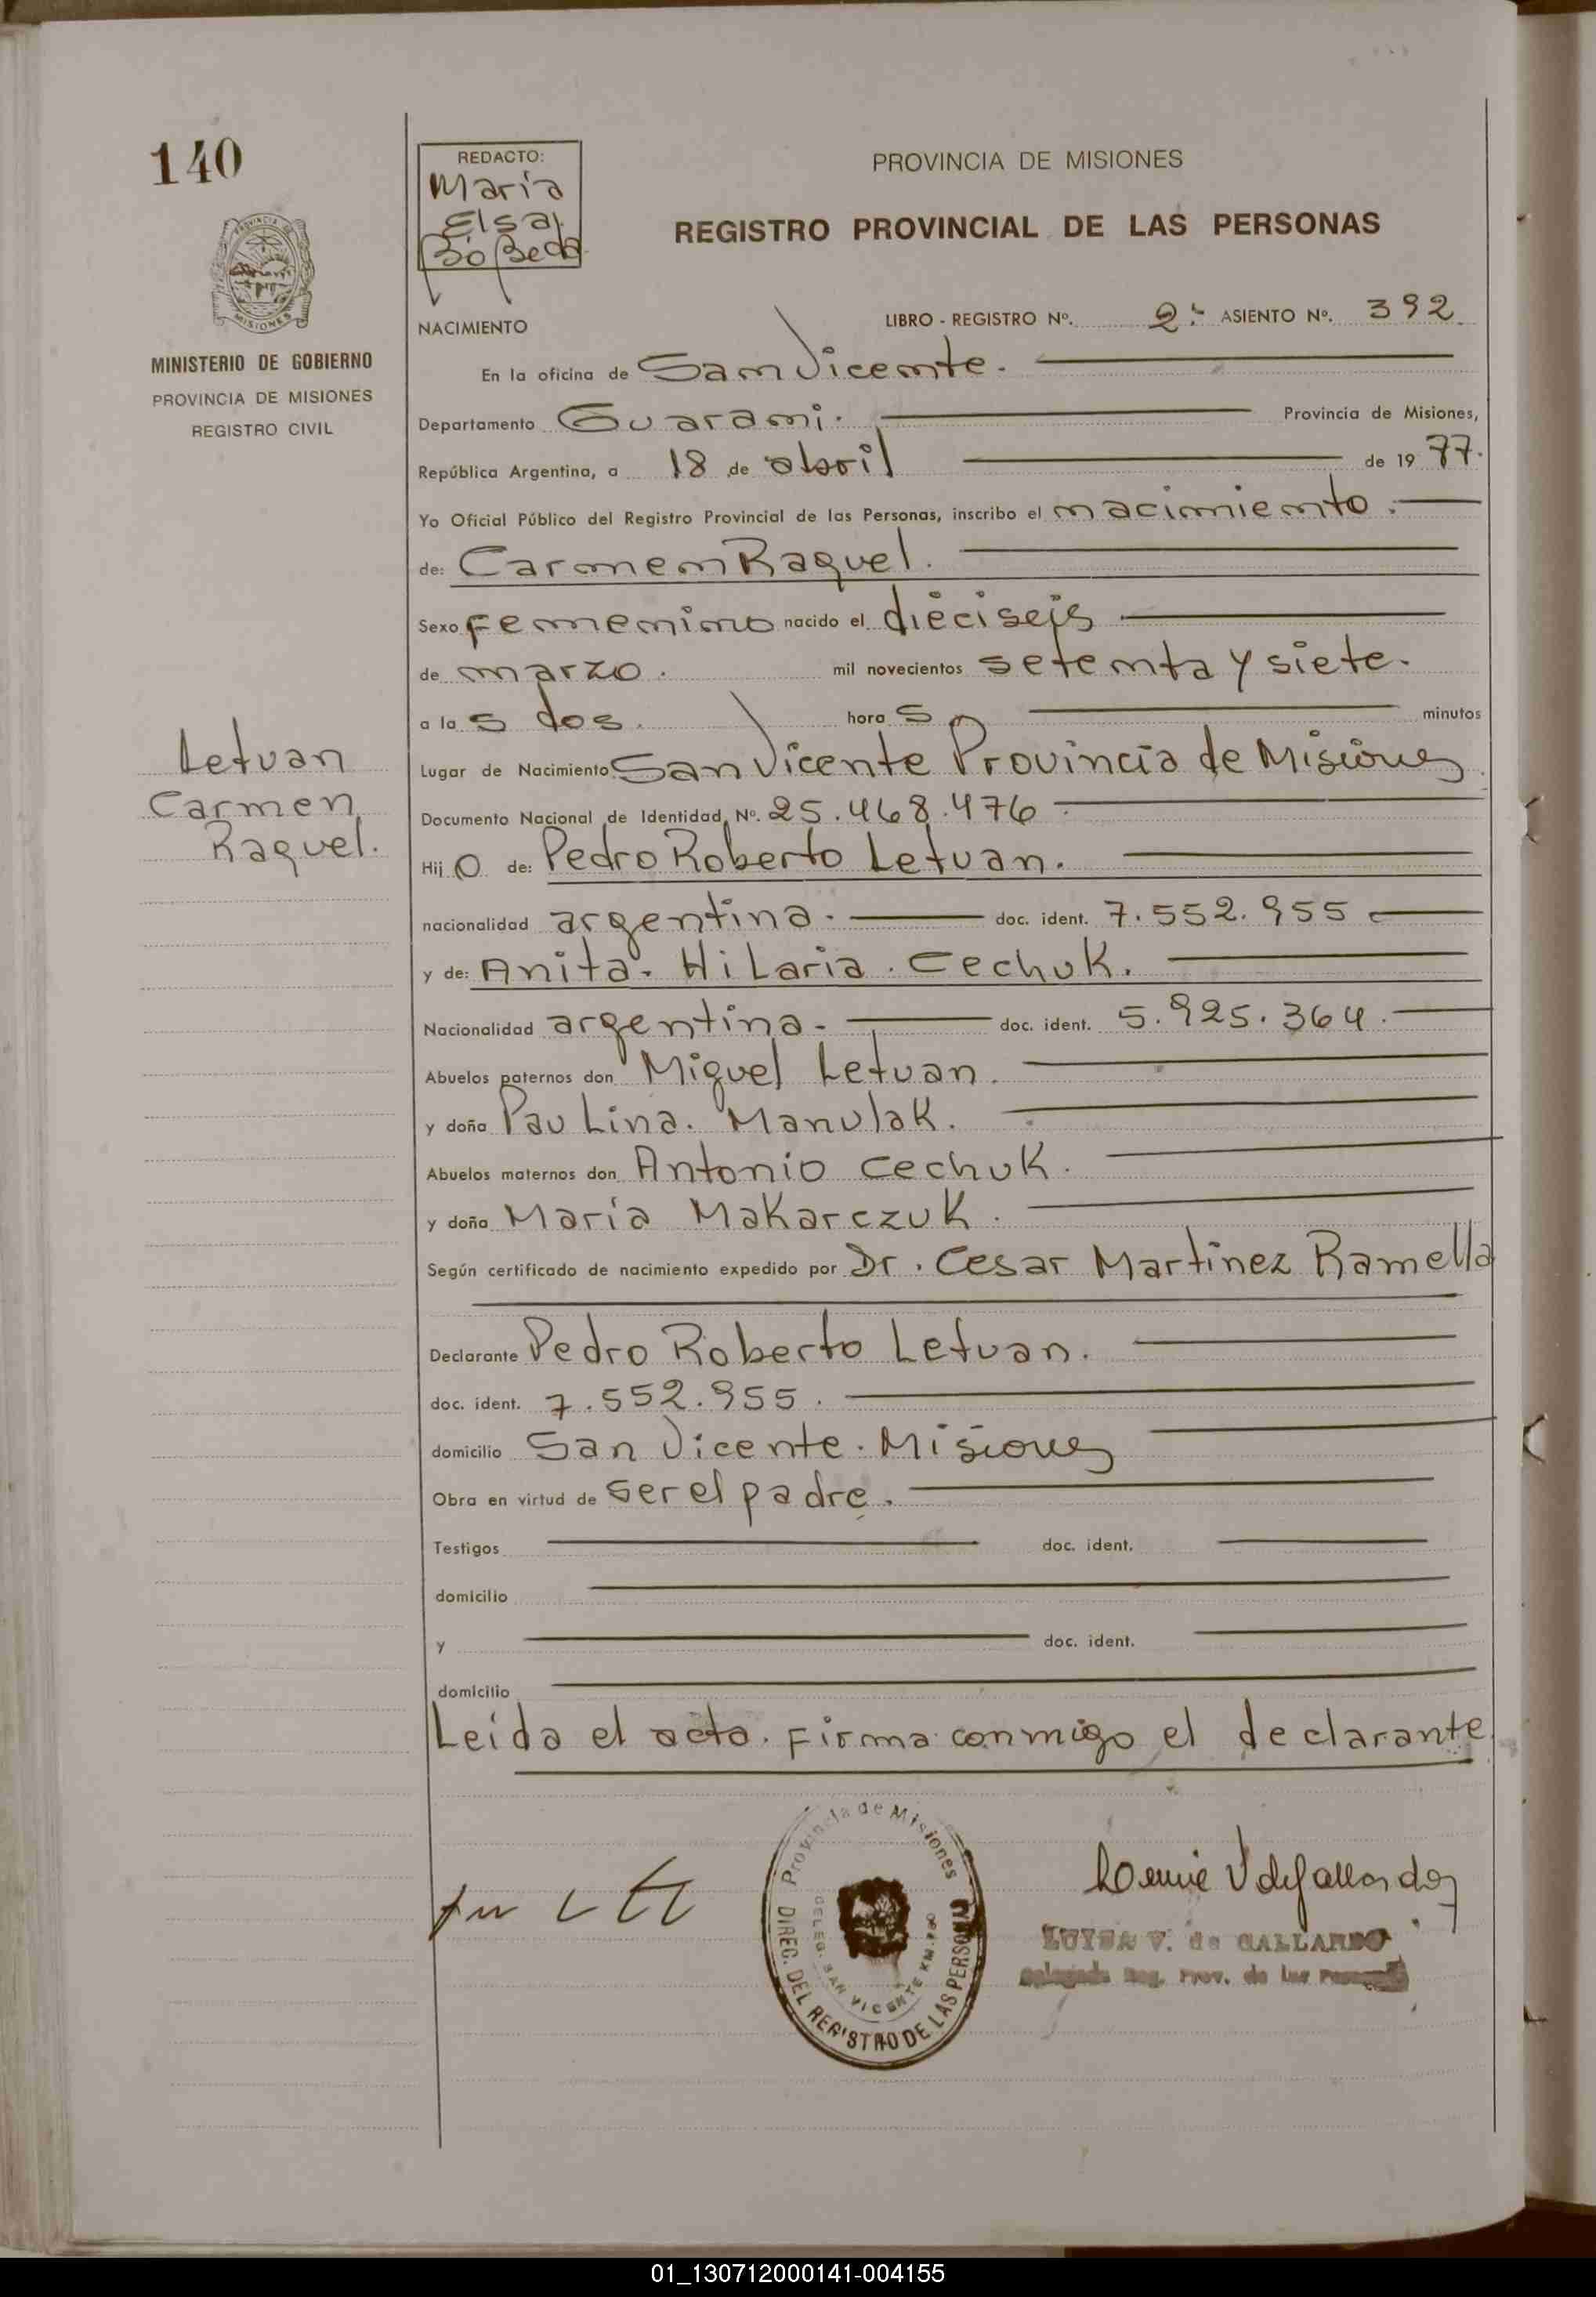 140
REDACTO:
María
Elsa
Bóbeda
PROVINCIA DE MISIONES
REGISTRO PROVINCIAL DE LAS PERSONAS
PROVINCIA DE
MISIONES
MINISTERIO DE GOBIERNO
PROVINCIA DE MISIONES
REGISTRO CIVIL
NACIMIENTO
LIBRO - REGISTRO Nº. 2º ASIENTO Nº. 392
En la oficina de San Vicente.
Departamento Guarani. Provincia de Misiones,
República Argentina, a 18 de abril de 19 77.
Yo Oficial Público del Registro Provincial de las Personas, inscribo el nacimiento.
de: Carmen Raquel.
Sexo Femenino nacido el dieciseis
de marzo. mil novecientos setenta y siete.
a la s dos. hora s minutos
Lugar de Nacimiento San Vicente Provincia de Misiones
Documento Nacional de Identidad, Nº. 25.468.476
Letvan
Carmen
Raquel.
Hij o de: Pedro Roberto Letvan.
nacionalidad argentina. doc. ident. 7.552.955
y de: Anita. Hilaria. Cechuk.
Nacionalidad argentina. doc. ident. 5.925.364.
Abuelos paternos don Miguel Letvan.
y doña Paulina. Manulak.
Abuelos maternos don Antonio Cechuk.
y doña María Makarczuk.
Según certificado de nacimiento expedido por Dr. Cesar Martinez Ramella
Declarante Pedro Roberto Letvan.
doc. ident. 7.552.955.
domicilio San Vicente. Misiones
Obra en virtud de ser el padre.
Testigos doc. ident.
domicilio
y doc. ident.
domicilio
Leida el acta. Firma conmigo el declarante
Provincia de Misiones
DIREC. DEL REGISTRO DE LAS PERSONAS
DELEG. SAN VICENTE KM.
V de Gallardo
LUISA V. de GALLARDO
Delegada Reg. Prov. de las Personas
01_130712000141-004155